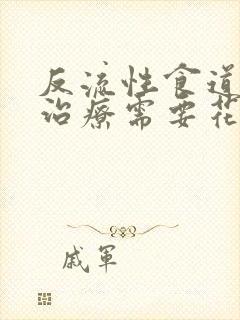 反流性食道
治疗需要花
戚軍